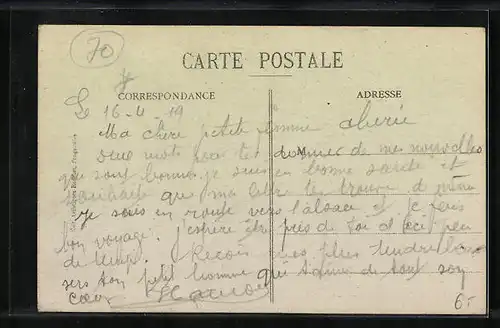 70
CARTE POSTALE
CORRESPONDANCE
ADRESSE
Le 16-4-19
Ma chère petite femme cherie
deux mots pour te donner de mes nouvelles
M
qui sont bonne je suis en bonne sante et
souhaite que ma lettre te trouve de même
je suis en route vers l'alsace et je fais
bon voyage. j'espère être près de toi d'ici peu
de temps. Recois mes plus tendre
sers ton petit homme qui t'aime de tout son
coeur
6.-